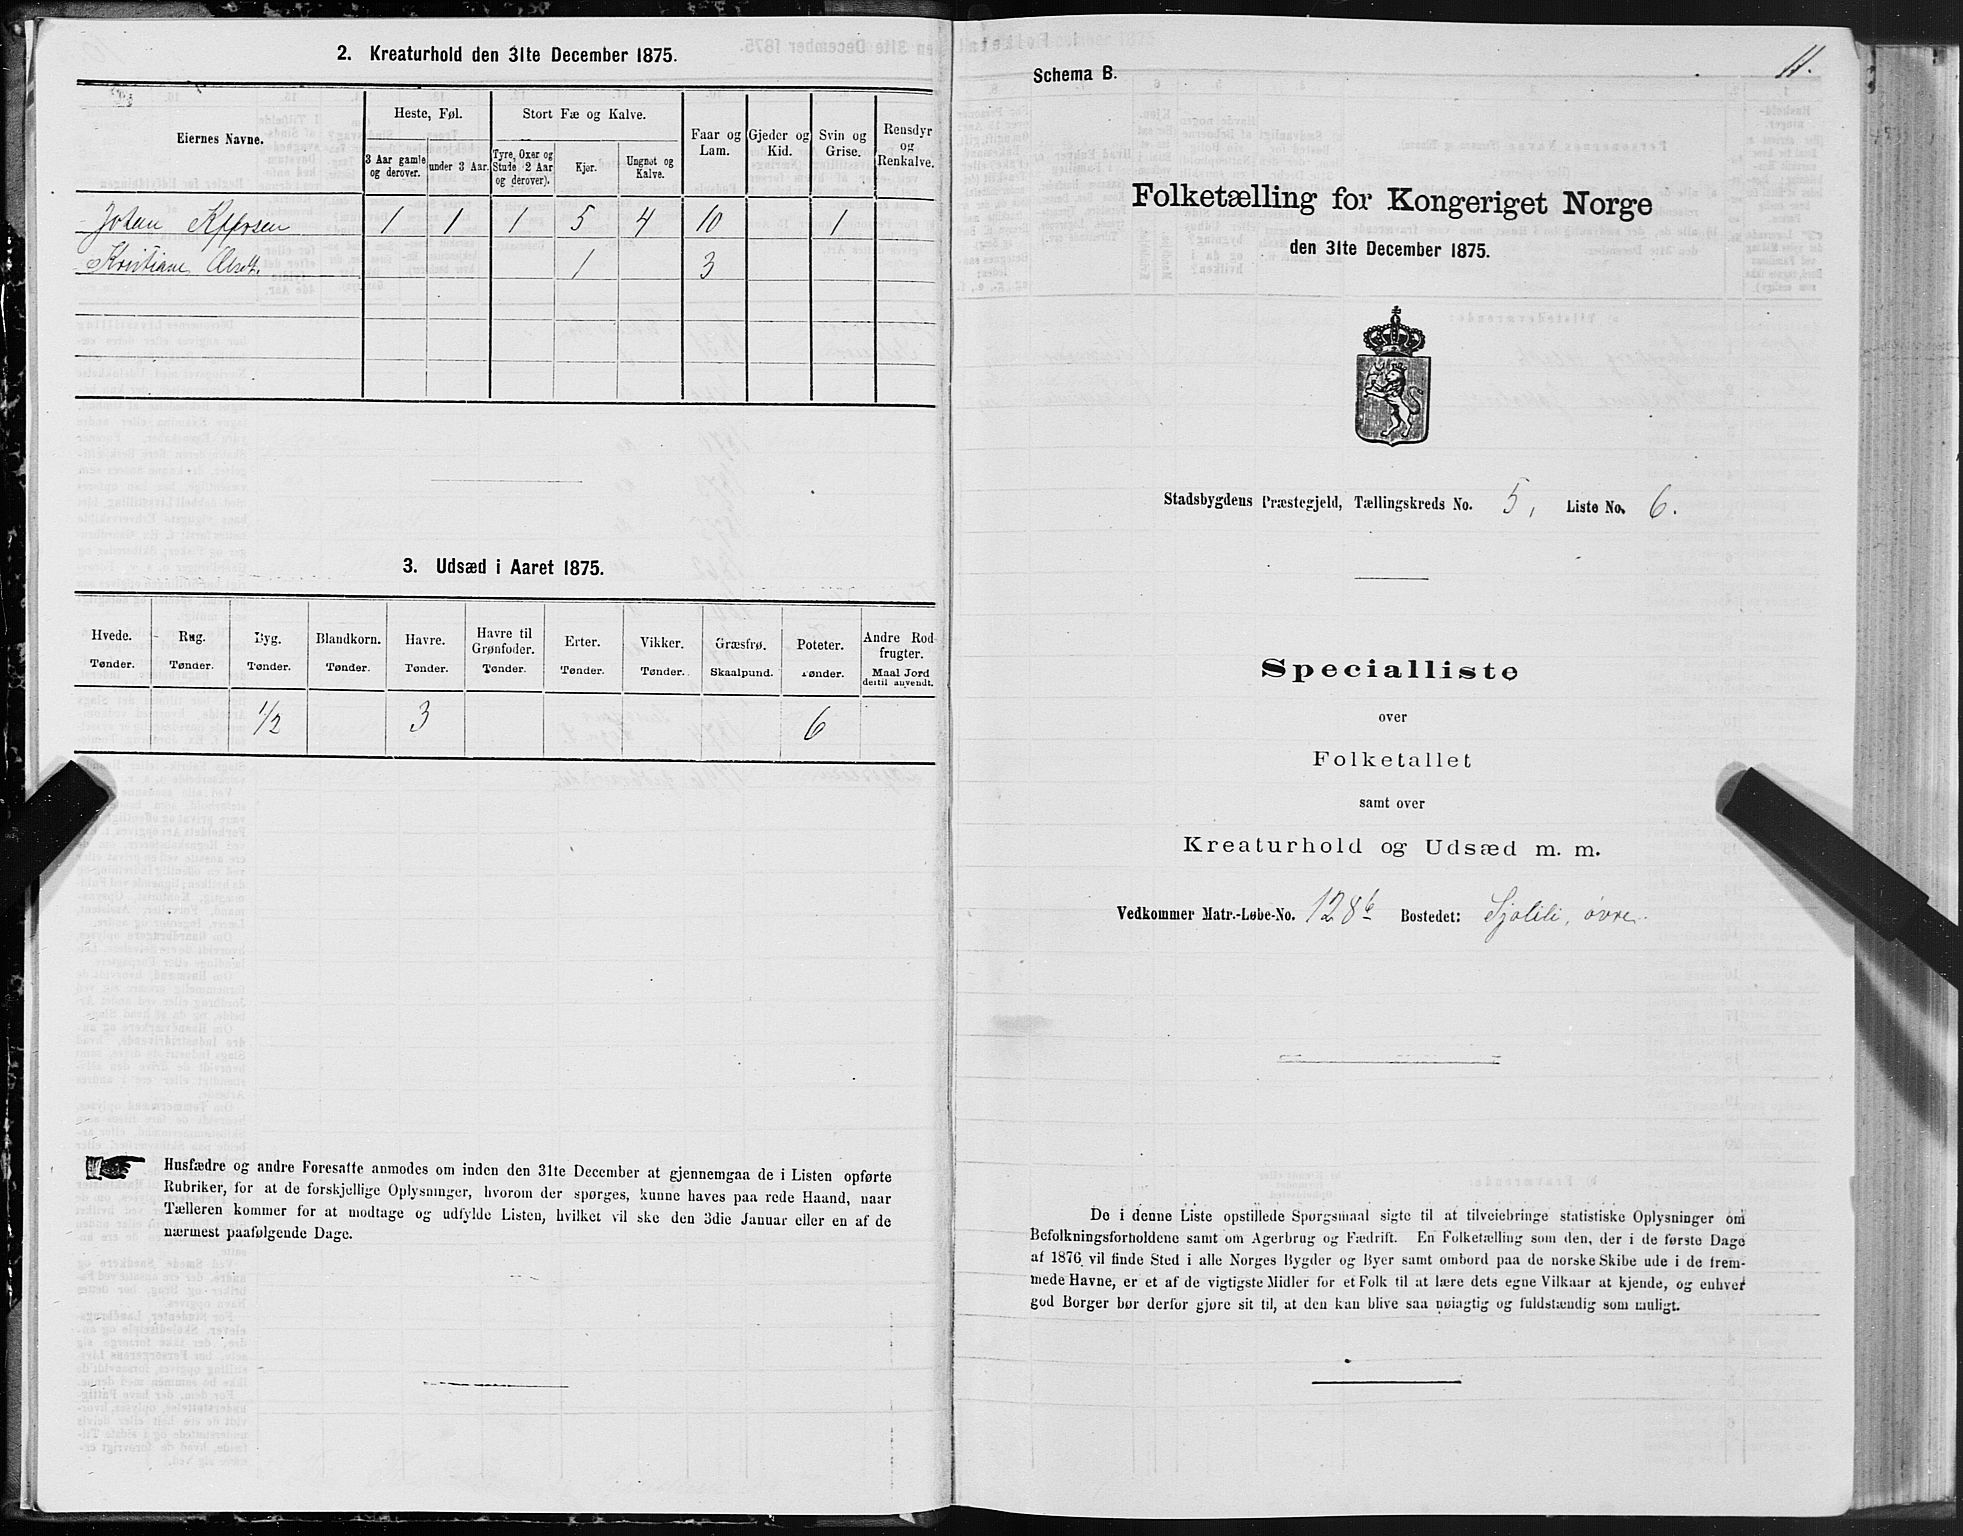 2. Kreaturhold den 31te December 1875.
Eiernes Navne.
Heste, Føl.
Stort Fæ og Kalve.
Faar og Lam.
Gjeder og Kid.
Svin og Grise.
Rensdyr og Renkalve.
3 Aar gamle og derover.
under 3 Aar.
Tyre, Oxer og Stude 2 Aar og derover).
Kjør.
Ungnøt og Kalve.
Johan 1 1 1 5 4 10 1
Kristiane 1 3
3. Udsæd i Aaret 1875.
Hvede. Rug. Byg. Blandkorn. Havre. Havre til Grønfoder. Erter. Vikker. Græsfrø. Poteter. Andre Rodfrugter.
Tønder. Tønder. Tønder. Tønder. Tønder. Tønder. Tønder. Tønder. Skaalpund. Tønder. Maal Jord dertil anvendt.
1/2 3 6
Husfædre og andre Foresatte anmodes om inden den 31te December at gjennemgaa de i Listen opførte
Rubriker, for at de forskjellige Oplysninger, hvorom der spørges, kunne haves paa rede Haand, naar
Tælleren kommer for at modtage og udfylde Listen, hvilket vil ske den 3die Januar eller en af de
nærmest paafølgende Dage.
11.
Schema B.
Folketælling for Kongeriget Norge
den 31te December 1875.
Stadsbygdens Præstegjeld, Tællingskreds No. 5, Liste No. 6.
Specialliste
over
Folketallet
samt over
Kreaturhold og Udsæd m. m.
Vedkommer Matr.-Løbe-No. 128b Bostedet: Sjølili, øvre.
De i denne Liste opstillede Spørgsmaal sigte til at tilveiebringe statistiske Oplysninger om
Befolkningsforholdene samt om Agerbrug og Fædrift. En Folketælling som den, der i de første Dage
af 1876 vil finde Sted i alle Norges Bygder og Byer samt ombord paa de norske Skibe ude i de frem-
mede Havne, er et af de vigtigste Midler for et Folk til at lære dets egne Vilkaar at kjende, og enhver
god Borger bør derfor gjøre sit til, at den kan blive saa nøiagtig og fuldstændig som muligt.